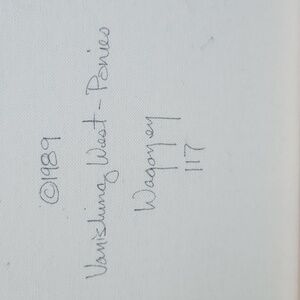 ©1989
Vanishing West - Ponies
Wagoney
117